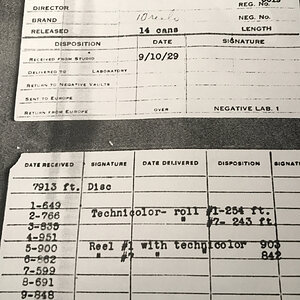 DIRECTOR
REG. NO.
BRAND 10 reels NEG. NO.
RELEASED 14 cans LENGTH
DISPOSITION DATE SIGNATURE
RECEIVED FROM STUDIO 9/10/29
DELIVERED TO LABORATORY
RETURN TO NEGATIVE VAULTS
SENT TO EUROPE
RETURN FROM EUROPE OVER NEGATIVE LAB. 1
DATE RECEIVED SIGNATURE DATE DELIVERED DISPOSITION SIGNATURE
7913 ft. Disc
1-649
2-766 Technicolor- roll #1-254 ft.
3-835 " #7- 243 ft.
4-951
5-900 Reel #1 with technicolor 903
6-862 " #7 " " 842
7-599
8-691
9-848